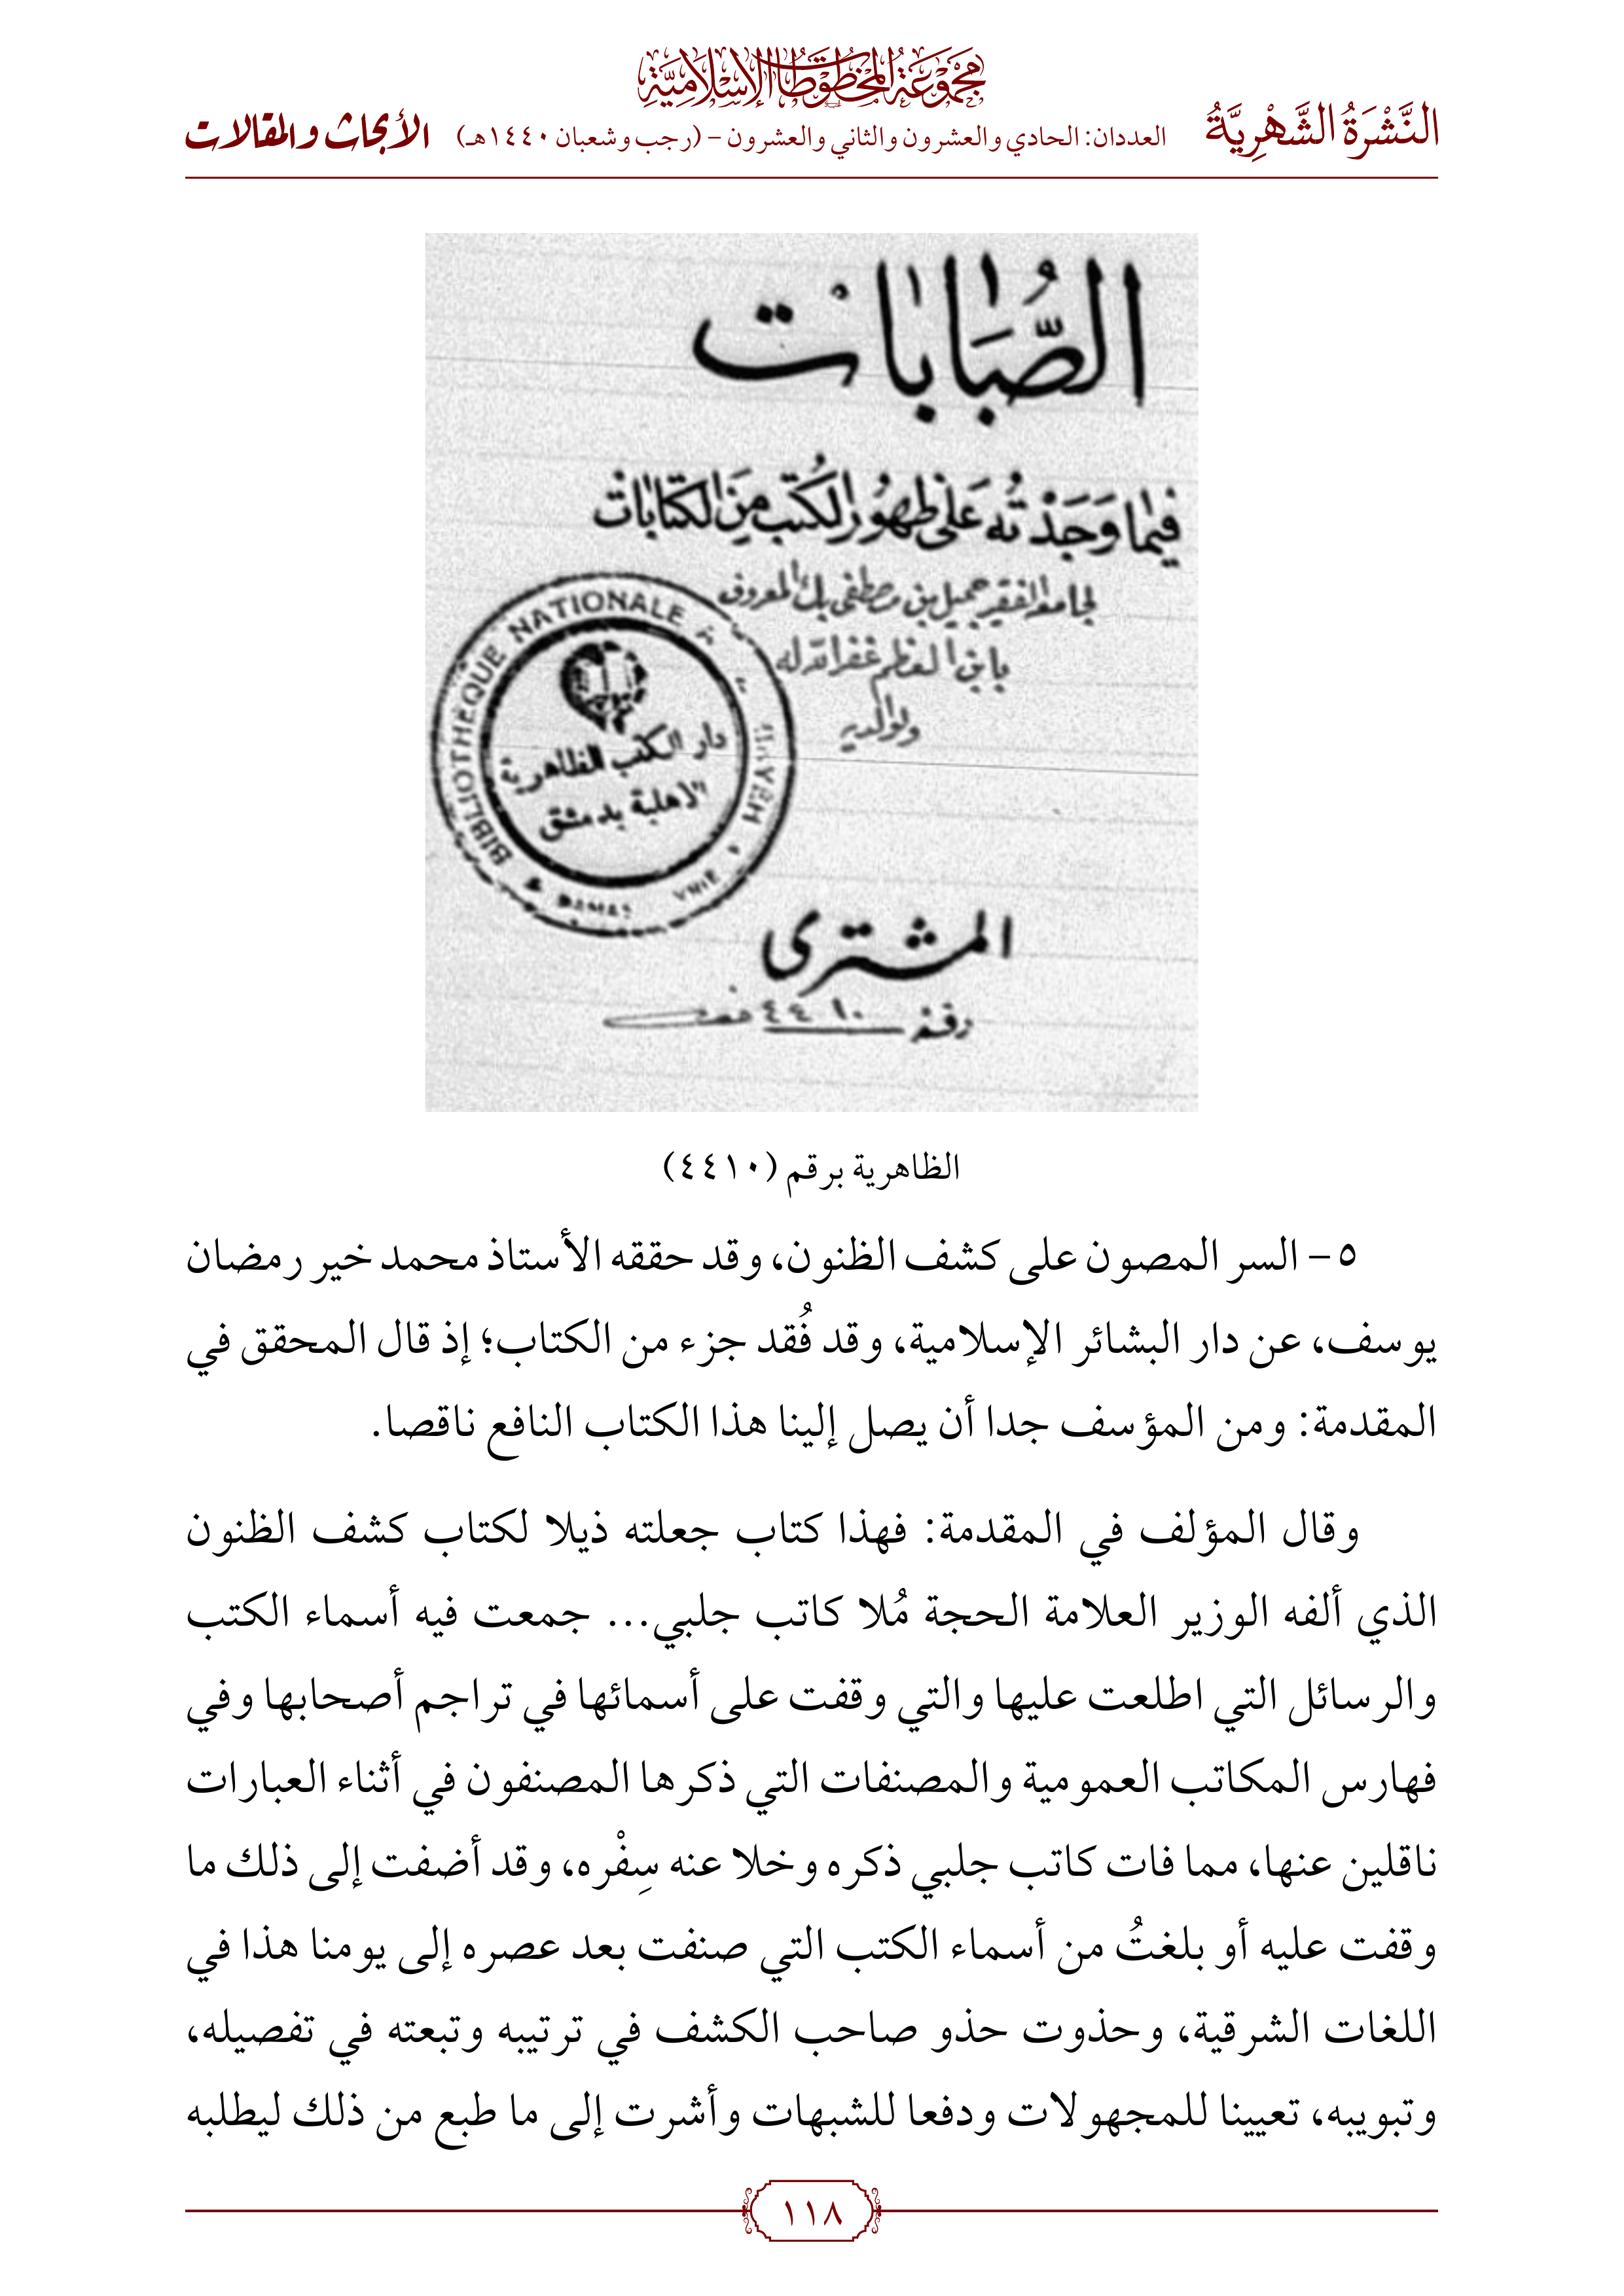 مجموعة المخطوطات الإسلامية
النَّشْرَةُ الشَّهْرِيَّةُ
العددان: الحادي والعشرون والثاني والعشرون – (رجب وشعبان ١٤٤٠هـ)
الأبحاث والمقالات
الصُّبَابَات
فيما وَجَدْتُه عَلى ظهُور الكُتب مِنَ الكتابات
لجامعه الفقير جميل بن مصطفى بك المعروف
بابن العظم غفر الله له
ولوالديه
BIBLIOTHEQUE NATIONALE
دار الكتب الظاهرية
الاهلية بدمشق
المشترى
رقم ٤٤١٠
الظاهرية برقم (٤٤١٠)
٥– السر المصون على كشف الظنون، وقد حققه الأستاذ محمد خير رمضان
يوسف، عن دار البشائر الإسلامية، وقد فُقد جزء من الكتاب؛ إذ قال المحقق في
المقدمة: ومن المؤسف جدا أن يصل إلينا هذا الكتاب النافع ناقصا.
وقال المؤلف في المقدمة: فهذا كتاب جعلته ذيلا لكتاب كشف الظنون
الذي ألفه الوزير العلامة الحجة مُلا كاتب جلبي... جمعت فيه أسماء الكتب
والرسائل التي اطلعت عليها والتي وقفت على أسمائها في تراجم أصحابها وفي
فهارس المكاتب العمومية والمصنفات التي ذكرها المصنفون في أثناء العبارات
ناقلين عنها، مما فات كاتب جلبي ذكره وخلا عنه سِفْره، وقد أضفت إلى ذلك ما
وقفت عليه أو بلغتُ من أسماء الكتب التي صنفت بعد عصره إلى يومنا هذا في
اللغات الشرقية، وحذوت حذو صاحب الكشف في ترتيبه وتبعته في تفصيله،
وتبويبه، تعيينا للمجهولات ودفعا للشبهات وأشرت إلى ما طبع من ذلك ليطلبه
١١٨